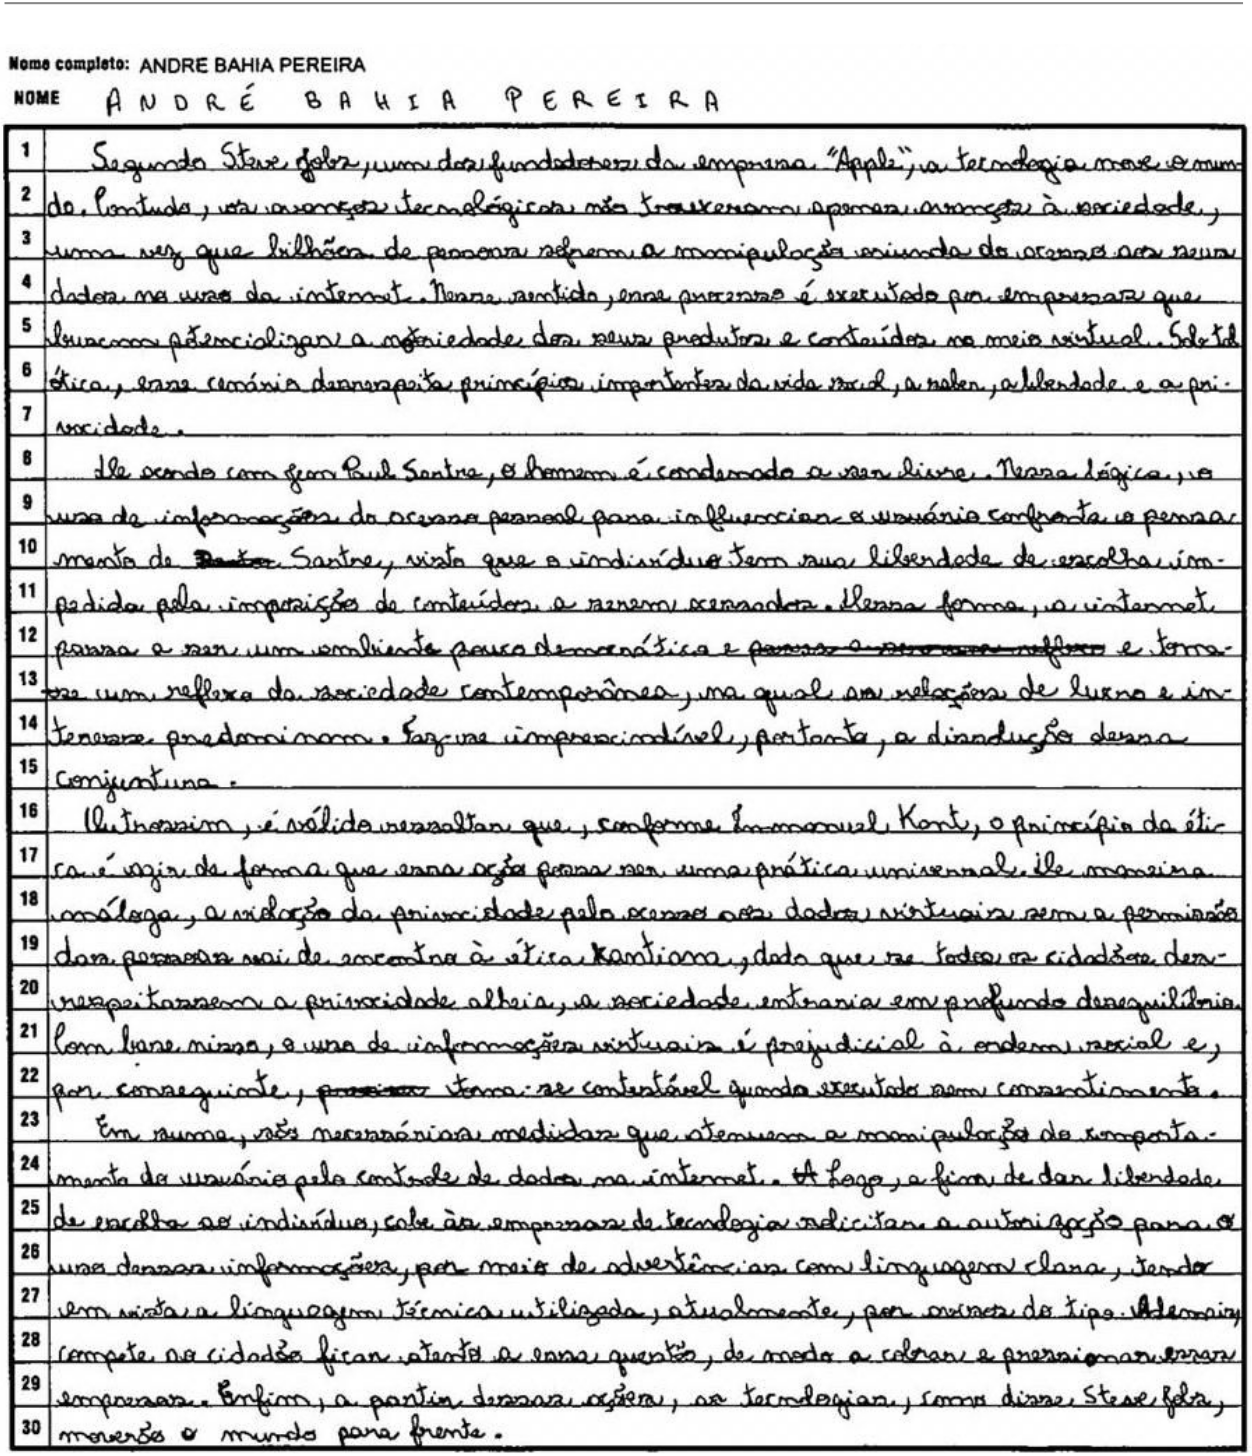 Nome completo: ANDRE BAHIA PEREIRA
NOME ANDRÉ BAHIA PEREIRA
1 Segundo Steve Jobs, um dos fundadores da empresa "Apple", a tecnologia move o mun-
2 do. Contudo, os avanços tecnológicos não trouxeram apenas avanços à sociedade,
3 uma vez que bilhões de pessoas sofrem a manipulação oriunda do acesso aos seus
4 dados no uso da internet. Nesse sentido, esse processo é executado por empresas que
5 buscam potencializar a notoriedade dos seus produtos e conteúdos no meio virtual. Sob tal
6 ótica, esse cenário desrespeita princípios importantes da vida social, a saber, a liberdade e a pri-
7 vacidade.
8 De acordo com Jean Paul Sartre, o homem é condenado a ser livre. Nessa lógica, o
9 uso de informações do acesso pessoal para influenciar o usuário confronta o pensa-
10 mento de Sartre, visto que o indivíduo tem sua liberdade de escolha im-
11 pedida pela imposição de conteúdos a serem acessados. Dessa forma, a internet
12 passa a ser um ambiente pouco democrático e passa a ser um reflexo e torna-
13 se um reflexo da sociedade contemporânea, na qual as relações de lucro e in-
14 teresse predominam. Faz-se imprescindível, portanto, a dissolução dessa
15 conjuntura.
16 Outrossim, é válido ressaltar que, conforme Immanuel Kant, o princípio da éti-
17 ca é agir de forma que essa ação possa ser uma prática universal. De maneira
18 análoga, a violação da privacidade pelo acesso aos dados virtuais sem a permissão
19 das pessoas vai de encontro à ética kantiana, dado que se todos os cidadãos des-
20 respeitassem a privacidade alheia, a sociedade entraria em profundo desequilíbrio.
21 Com base nisso, o uso de informações virtuais é prejudicial à ordem social e,
22 por conseguinte, torna-se contestável quando executado sem consentimento.
23 Em suma, são necessárias medidas que atenuem a manipulação do comporta-
24 mento do usuário pelo controle de dados na internet. A Logo, a fim de dar liberdade
25 de escolha ao indivíduo, cabe às empresas de tecnologia solicitar a autorização para o
26 uso dessas informações, por meio de advertências com linguagem clara, tendo
27 em vista a linguagem técnica utilizada, atualmente, por avisos do tipo. Ademais,
28 compete ao cidadão ficar atento a essa questão, de modo a cobrar e pressionar essas
29 empresas. Enfim, a partir dessas ações, as tecnologias, como disse Steve Jobs,
30 moverão o mundo para frente.